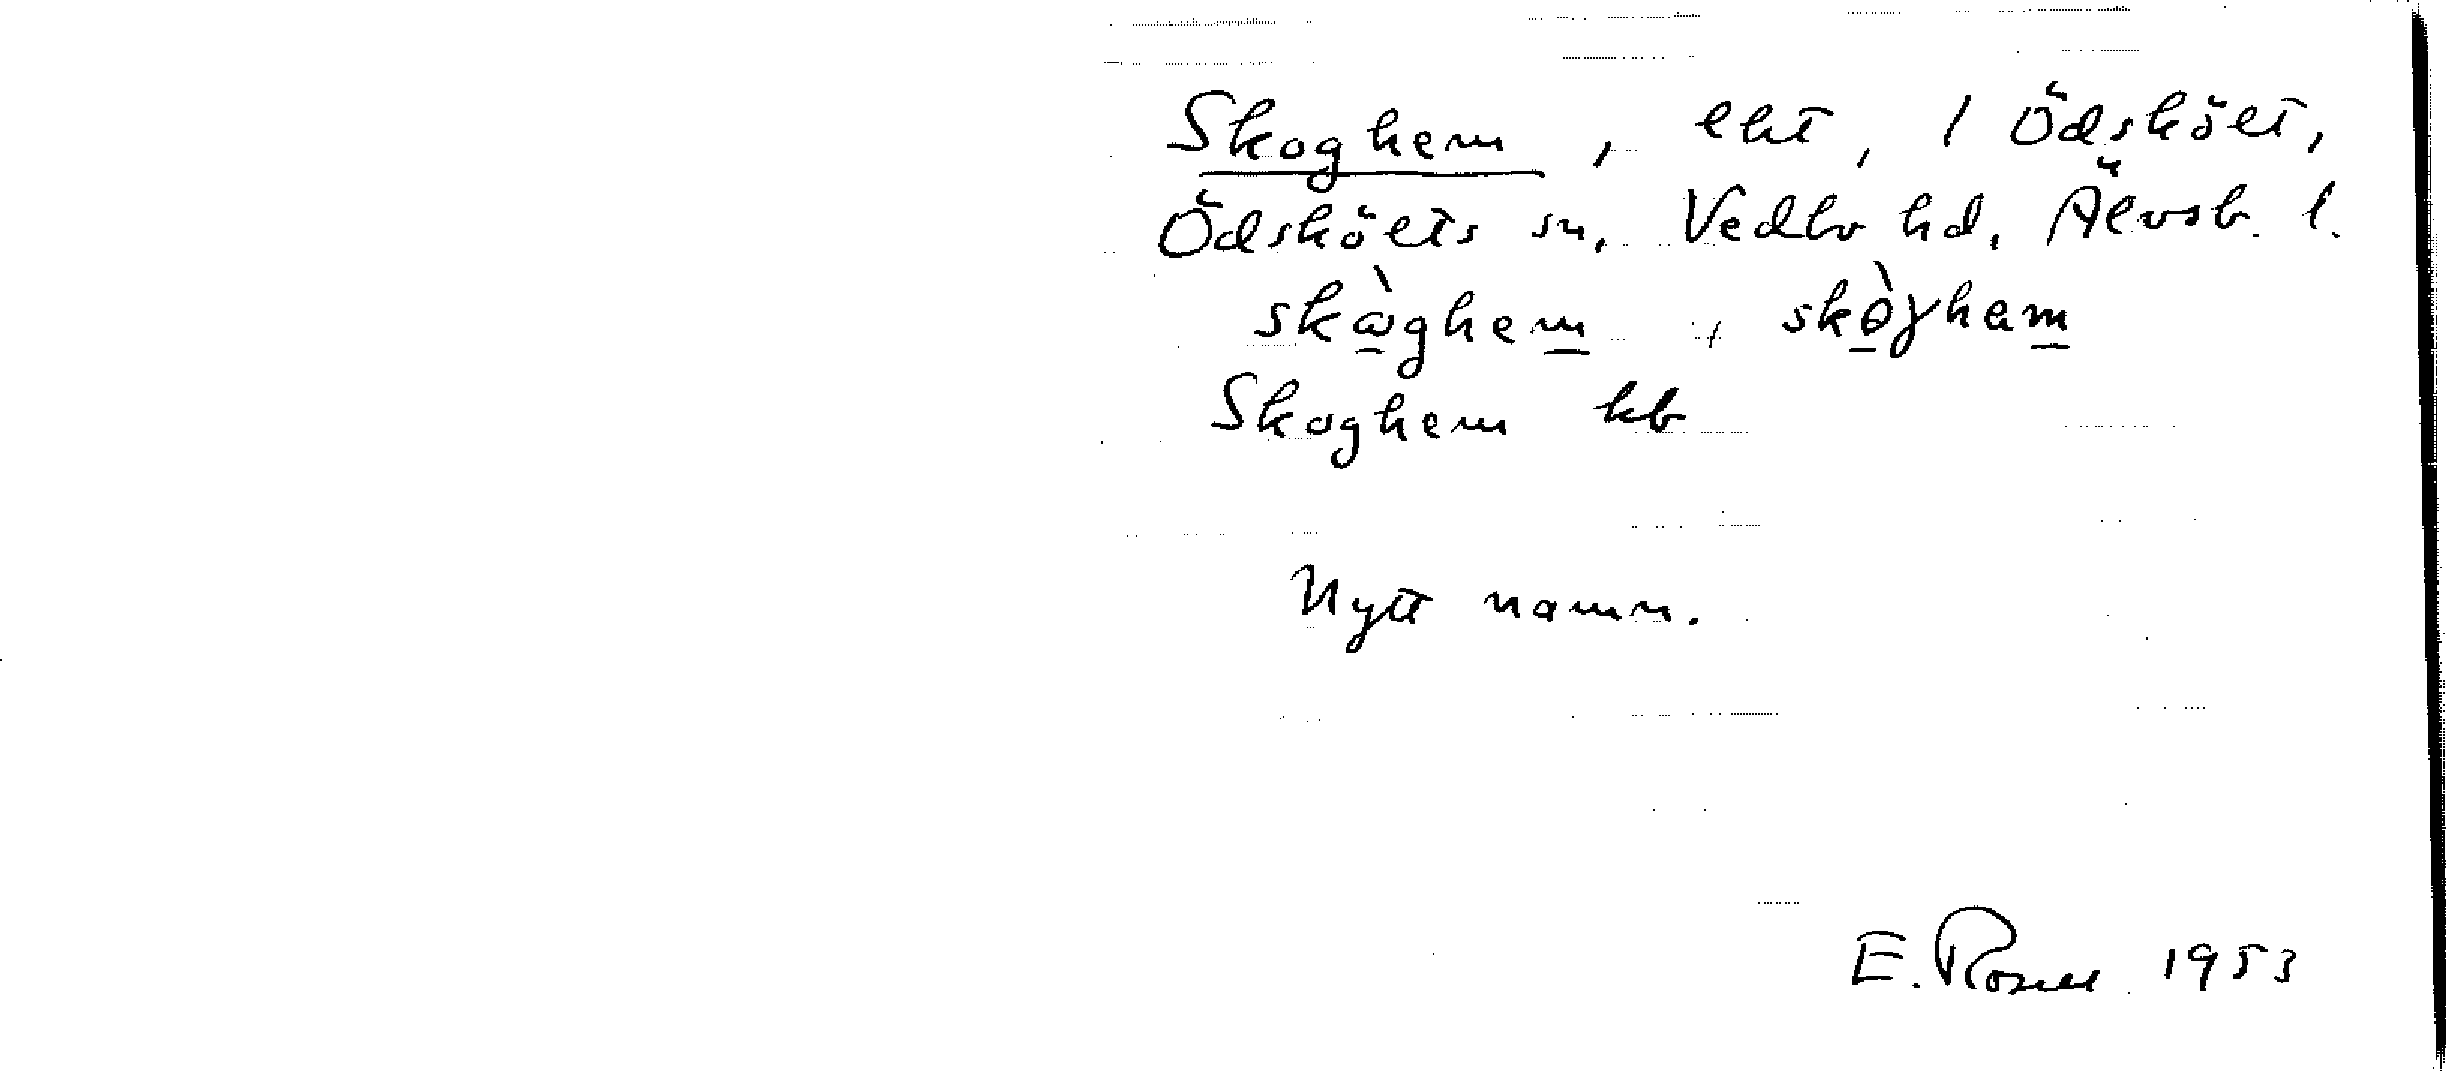 Skoghem, lht, 1 Ödskölt,
Ödskölts sn, Vedbo hd, Älvsb. l.
skòghem + skòghem
Skoghem kb
Nytt namn.
E. Rosell 1953